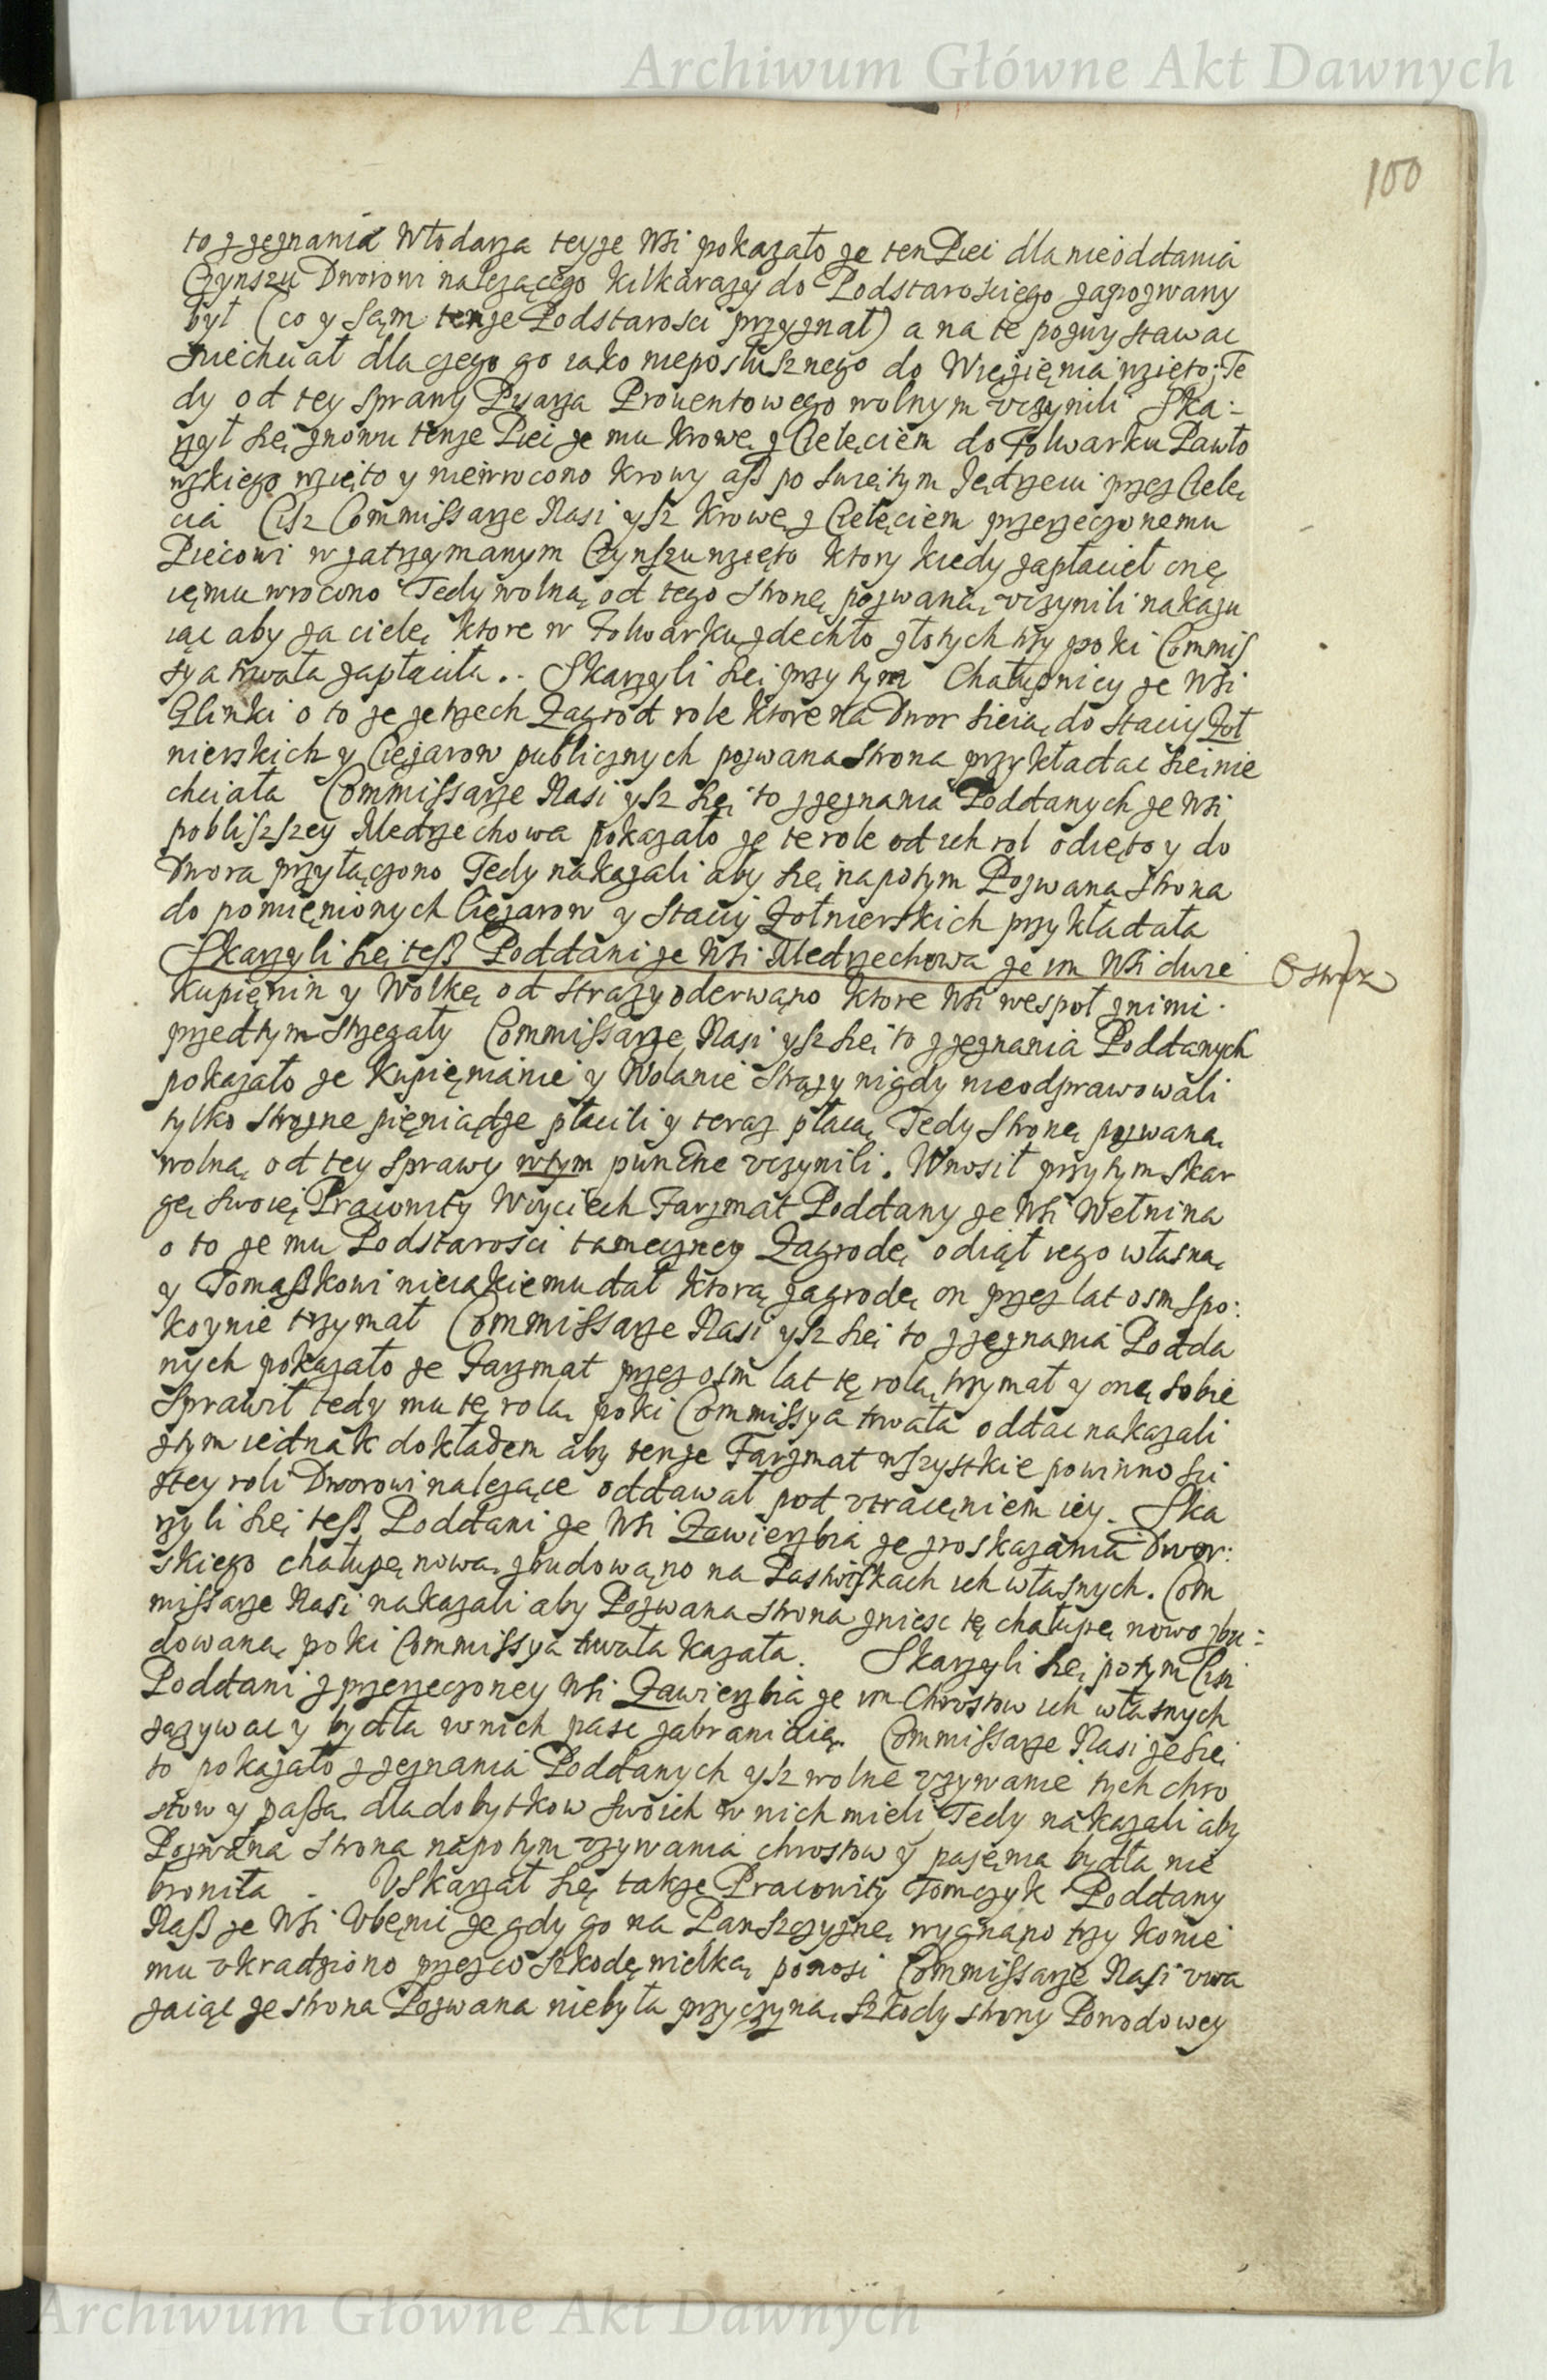 Archiwum Główne Akt Dawnych
100
to z zeznania Włodarza teyze Wsi pokazało ze ten Pieć dla nieoddania
Czynszu Dworowi nalezącego kilkarazy do Podstarosciego zapozwany
był (co y sąm tenze Podstarosci przyznał) a na te pozwy stawac
niechciał dla czego go iako nieposłusznego do Więzięnia wzięto; Te
dy od tey sprawy Pisarza Prouentowego wolnym vczynili Ska:
rzył się znowu tenze Pieć ze mu krowę z Cielęciem do Folwarku Pawło
wskiego wzięto y niewrocono krowy asz po swiętym Jędrzeiu przez Cielę
cia Cisz Commissarze Nasi ysz krowę z Cielęciem przerzeczonemu
Piecowi w zatrzymanym Czynszu wzięto ktory kiedy zapłacieł onę
ięmu wrocono Tedy wolną od tego stronę pozwaną vczynili nakazu
iąc aby za cielę ktore w Folwarku zdechło złotych trzy poki Commis
sya trwała zapłaciła. Skarzyli się przy tym Chałupnicy ze Wsi
Glinki o to ze ze trzech Zagrod role ktore na Dwor sieią do stacij Zoł
nierskich y Cięzarow publicznych pozwana strona przykładac się nie
chciała Commissarze Nasi ysz się to z zeznania Poddanych ze Wsi
pobliszszey Medrzechowa pokazało ze te role od ich rol odięto y do
Dwora przyłączono Tedy nakazali aby się napotym Pozwana strona
do pomięnionych Cięzarow y Stacij Zołnierskich przykładała
Skarzyli się tesz Poddani ze Wsi Medrzechowa ze im Wsi dwie
Kupięnin y Wolkę od strazy oderwano ktore Wsi wespoł z nimi
przedtym strzegały Commissarze Nasi ysz się to z zeznania Poddanych
pokazało ze Kupięnianie y Wolanie Strazy nigdy nieodprawowali
tylko strozne pięniądze płacili y teraz płacą Tedy stronę pozwaną
wolną od tey sprawy wtym punkcie vczynili. Wnosił przytym skar
gę swoię Pracowity Woyciech Farzmat Poddany ze Wsi Wełnina
o to ze mu Podstarosci tameczney Zagrodę odiął iego własną
y Tomaszkowi nieiakiemu dał ktorą zagrodę on przez lat osm spo:
koynie trzymał Commissarze Nasi ysz się to z zeznania Podda
nych pokazało ze Farzmat przez osm lat tę rolą trzymał y onę sobie
sprawił tedy mu tę rolą poki Commissya trwała oddac nakazali
ztym iednak dokładem aby tenze Farzmat wszystkie powinnosci
ztey roli Dworowi nalezące oddawał pod vtracęniem iey. Ska
rzyli się tesz Poddani ze Wsi Zawierzbia ze z roskazania Dwor:
skiego chałupę nową zbudowąno na Pastwiskach ich własnych. Com
missarze Nasi nakazali aby Pozwana strona zniesc tę chałupę nowo zbu:
dowaną poki Commissya trwała kazała. Skarzyli się potym Cisz
Poddani z przerzeczoney Wsi Zawierzbia ze im Chrostow ich własnych
zazywac y bydła w nich pasc zabraniaią. Commissarze Nasi ze się
to pokazało z zeznania Poddanych ysz wolne vzywanie tych chro
stow y paszą dla dobytkow swoich w nich mieli Tedy nakazali aby
Pozwana strona napotym vzywania chrostow y pasęnia bydła nie
broniła. Vskarzał się takze Pracowity Tomczyk Poddany
Nasz ze Wsi Vbęnie ze gdy go na Panszczyznę wygnąno trzy konie
mu vkradziono przez co szkodę wielką ponosi Commissarze Nasi vwa
zaiąc ze strona Pozwana niebyła przyczyną szkody strony Powodowey
Archiwum Główne Akt Dawnych